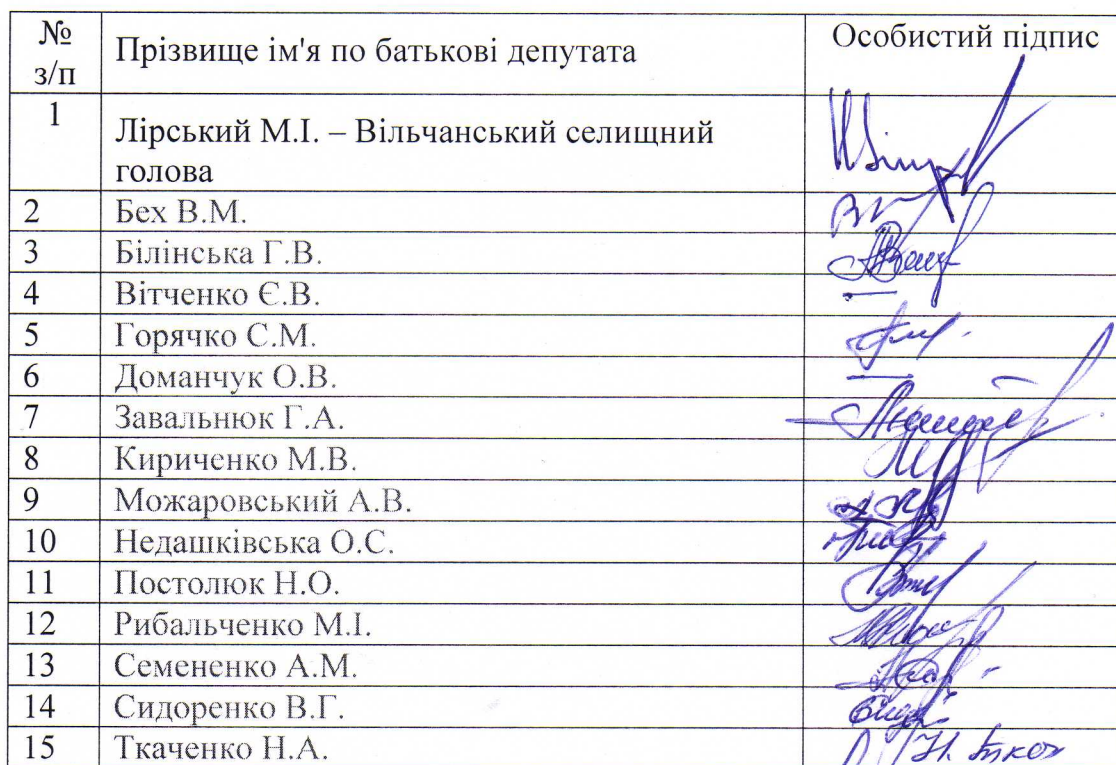 № з/п Прізвище ім'я по батькові депутата Особистий підпис
1 Лірський М.І. – Вільчанський селищний
голова
2 Бех В.М.
3 Білінська Г.В.
4 Вітченко Є.В.
5 Горячко С.М.
6 Доманчук О.В.
7 Завальнюк Г.А.
8 Кириченко М.В.
9 Можаровський А.В.
10 Недашківська О.С.
11 Постолюк Н.О.
12 Рибальченко М.І.
13 Семененко А.М.
14 Сидоренко В.Г.
15 Ткаченко Н.А.